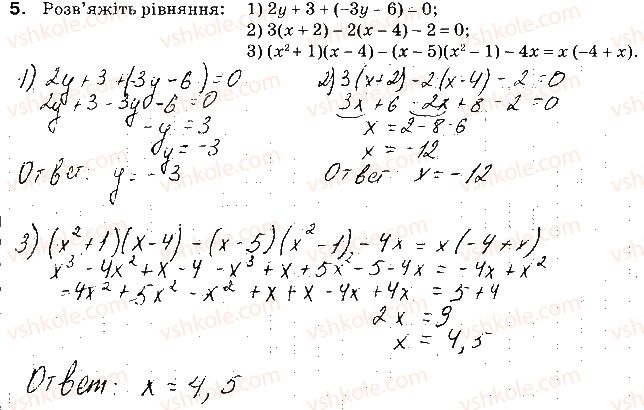 5. Розв'яжіть рівняння: 1) 2y + 3 + (−3y − 6) = 0;
2) 3(x + 2) − 2(x − 4) − 2 = 0;
3) (x² + 1)(x − 4) − (x − 5)(x² − 1) − 4x = x(−4 + x).
1) 2y + 3 + (−3y − 6) = 0
2y + 3 − 3y − 6 = 0
−y = 3
y = −3
Ответ: y = −3
2) 3(x+2) − 2(x−4) − 2 = 0
3x + 6 − 2x + 8 − 2 = 0
x = 2 − 8 − 6
x = −12
Ответ: x = −12
3) (x² + 1)(x − 4) − (x − 5)(x² − 1) − 4x = x(−4 + x)
x³ − 4x² + x − 4 − x³ + x + 5x² − 5 − 4x = −4x + x²
−4x² + 5x² − x² + x + x − 4x + 4x = 5 + 4
2x = 9
x = 4,5
Ответ: x = 4,5
vshkole.com